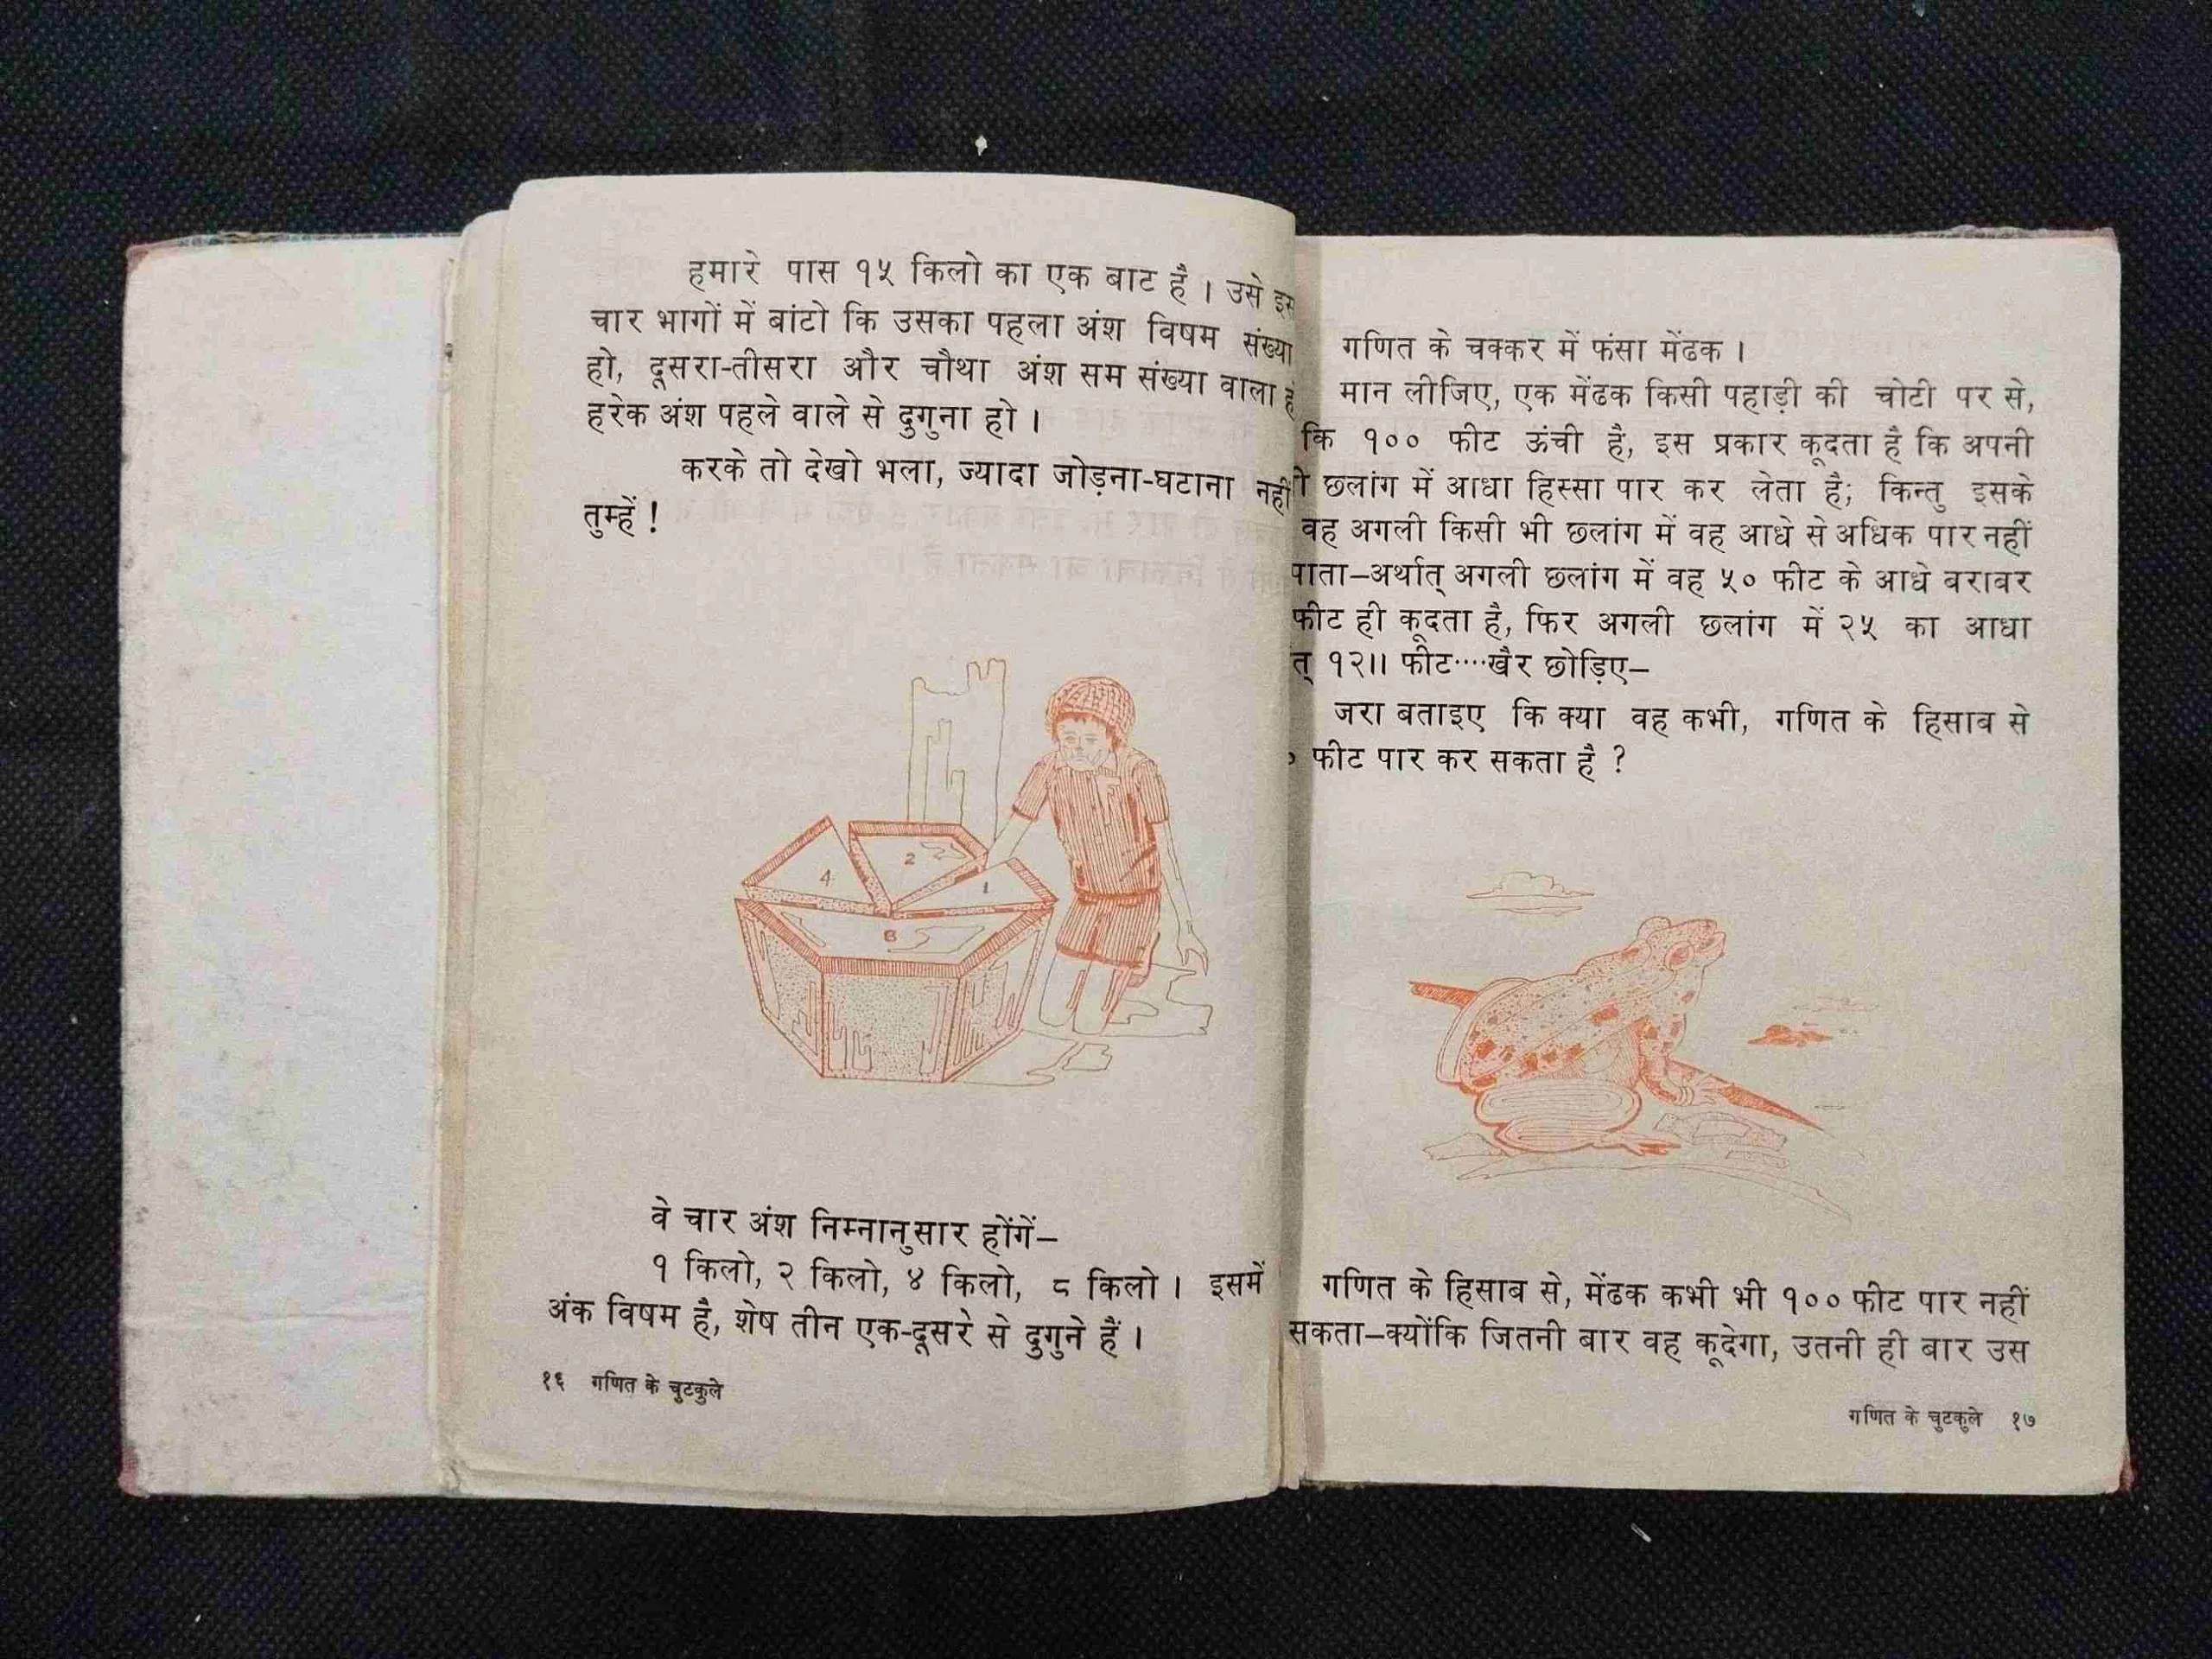 हमारे पास १५ किलो का एक बाट है । उसे इस
चार भागों में बांटो कि उसका पहला अंश विषम संख्या
हो, दूसरा-तीसरा और चौथा अंश सम संख्या वाला
हरेक अंश पहले वाले से दुगुना हो ।
करके तो देखो भला, ज्यादा जोड़ना-घटाना नहीं
तुम्हें !
4
2
1
8
वे चार अंश निम्नानुसार होंगें–
१ किलो, २ किलो, ४ किलो, ८ किलो । इसमें
अंक विषम है, शेष तीन एक-दूसरे से दुगुने हैं ।
१६ गणित के चुटकुले
गणित के चक्कर में फंसा मेंढक ।
मान लीजिए, एक मेंढक किसी पहाड़ी की चोटी पर से,
कि १०० फीट ऊंची है, इस प्रकार कूदता है कि अपनी
छलांग में आधा हिस्सा पार कर लेता है; किन्तु इसके
वह अगली किसी भी छलांग में वह आधे से अधिक पार नहीं
पाता–अर्थात् अगली छलांग में वह ५० फीट के आधे बराबर
फीट ही कूदता है, फिर अगली छलांग में २५ का आधा
त् १२।। फीट····खैर छोड़िए–
जरा बताइए कि क्या वह कभी, गणित के हिसाब से
फीट पार कर सकता है ?
गणित के हिसाब से, मेंढक कभी भी १०० फीट पार नहीं
सकता–क्योंकि जितनी बार वह कूदेगा, उतनी ही बार उस
गणित के चुटकुले १७